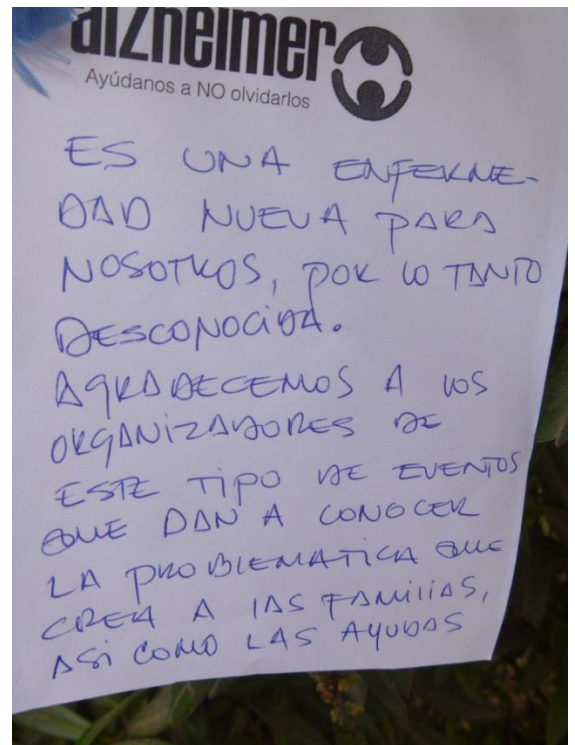 alzheimer
Ayúdanos a NO olvidarlos
ES UNA ENFERME-
DAD NUEVA PARA
NOSOTROS, POR LO TANTO
DESCONOCIDA.
AGRADECEMOS A LOS
ORGANIZADORES DE
ESTE TIPO DE EVENTOS
QUE DAN A CONOCER
LA PROBLEMATICA QUE
CREA A LAS FAMILIAS,
ASI COMO LAS AYUDAS